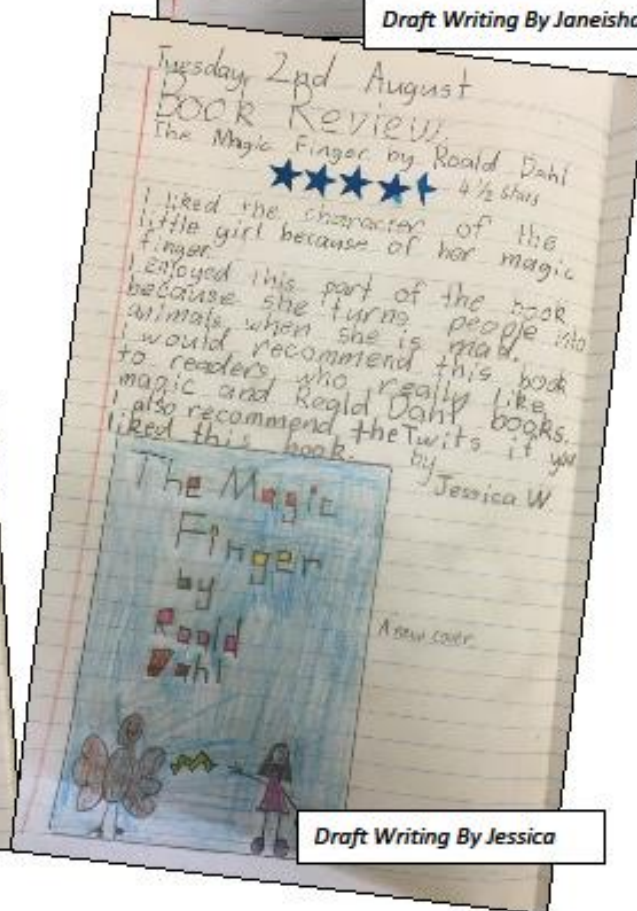 Draft Writing By Janeisha
Tuesday, 2nd August
Book Review.
The Magic Finger by Roald Dahl
4 ½ stars
I liked the character of the
little girl because of her magic
finger.
I enjoyed this part of the book
because she turns people into
animals when she is mad.
I would recommend this book
to readers who really like
magic and Roald Dahl books.
I also recommend the Twits if you
liked this book.
by
Jessica W
The Magic
Finger
by
Roald
Dahl
A new cover
Draft Writing By Jessica